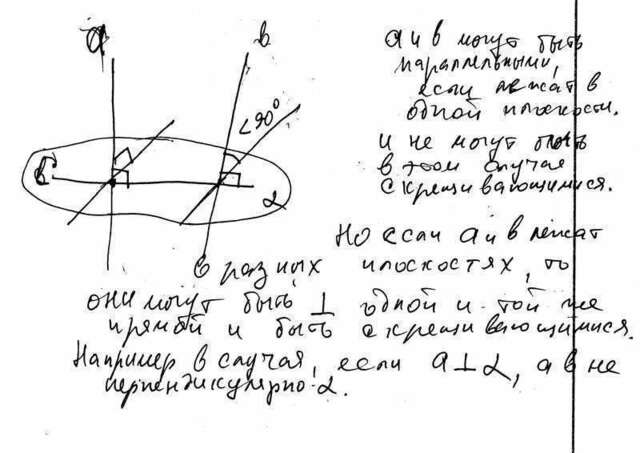 a
в
а и в могут быть
параллельными,
если лежат в
одной плоскости.
<90°
и не могут быть
в этом случае
скрещивающимися.
α
Но если а и в лежат
в разных плоскостях, то
они могут быть ⊥ одной и той же
прямой и быть скрещивающимися.
Например в случая, если a⊥α, а в не
перпендикулярно α.